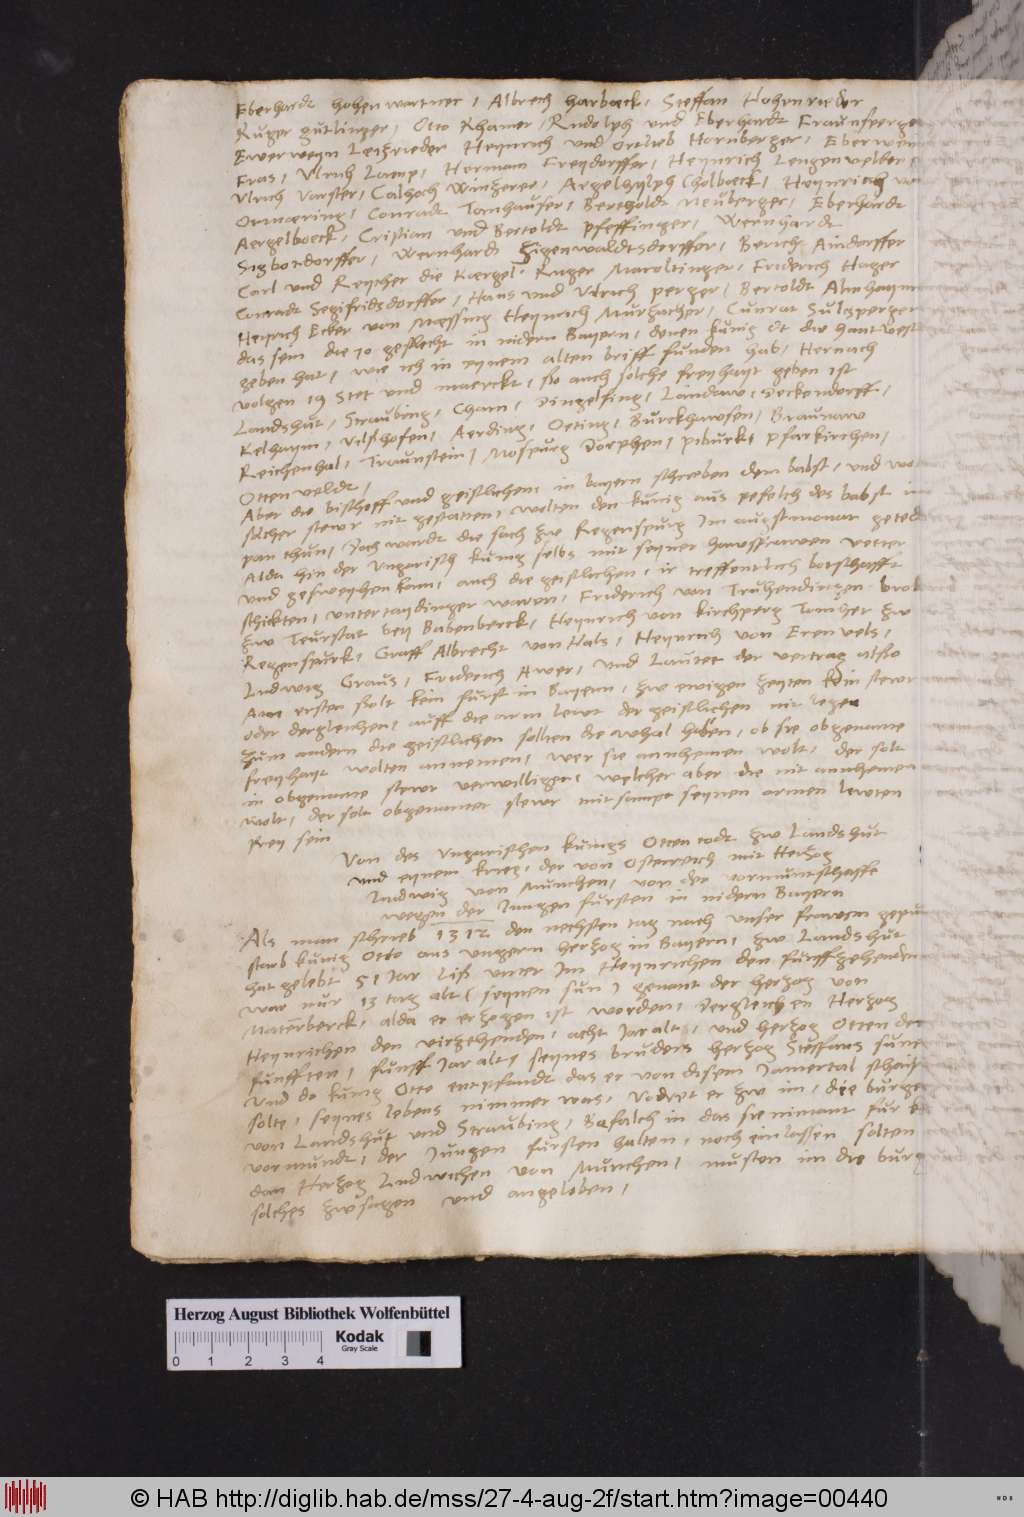 Eberhardt hohenwartner, Albrech harboeck, Steffan Hohenrieder
Ruger gutlinger, Otto Rhamer, Rudolph und Eberhardt Fraunsperge
Ewerweyn Leizrieder Heynrich und Ortlieb Hornberger,
Fras, Ulrich Hermann Freydorffer, Heynrich Lengenvelder
Ulrich Vorster, Calhoch Winzerer, Aergelhylph Cholboeck, Heynrich
Ormoering, Conradt Tanhauser, Bertholdt Neuberger, Eberhardt
Aergelboeck, Cristian und Bertoldt Pfeffinger, Wernhardt
Sigbotdorffer, Wernhardt Berich Aindorffer
Carl und Reycher die Koergel, Ruger Maroltinger, Friderich Hager
Conradt Segifridsdorffer, Hans und Ulrich perger, Bertoldt
Heyrich Ecker von Messing Heynrich Murhacher, Cunrat Sulczperger
das sein die 70 geslecht in nidern Bayern, denen kunig Ot die hantvest
geben hat, wie ich in eynem alten briff funden hab, Hernach
volgen 19 Stet und maerckt, so auch solche freyhayt geben ist
Landshut, Straubing, Cham, Dingelfing, Landaw, Deckendorff,
Kelhaym, Vilshofen, Aerding, Oeting, Burckhawsen, Braunaw
Reichenhal, Traunstein, Mospurg Dorphen, piburk, Pfarkirchen,
Ottenveldt,
Aber die bischoff und geistlichen in bayern schrieben dem babst, und
solcher stewr nit gestatten, wolten den kunig aus pefelch des babst
pan thun, Doch wardt die sach zw Regenspurg Im augstmonat
Alda hin der Ungarisch kunig selbs mit seyner hawsfrawen vetter
und geschweychen kam, auch die geistlichen, ir treffentlich botschafft
schikten, untertaydinger waren, Friderich von Truhendingen
zw Teurstat bey Babenberck, Heynrich von Kirchperg Tomher zw
Regenspurk, Graff Albrecht von Hals, Heynrich von Erenvels,
Ludwig Graus, Friderich Awer, und Lautet der vertrag also
Am ersten solt kein furst in Bayern, zw ewigen zeyten kain stewr
oder dergleichen, auff die arm lewt der geistlichen nit legen
Zum andern die geistlichen solten die whal haben, ob sie obgenante
freyhayt wolten annemen, wer sie annhemen wolt, der solt
in obgenante stewr verwilligen, welcher aber die nit annhemen
wolt, der solt obgenanter stewr mit sampt seynen armen lewten
frey sein
Von des Ungarischen kunigs Otten todt zw Landshut
und eynem krieg, der von Osterreich mit Herzog
Ludwig von Munchen, von der vormuntschafft
wegen der Jungen fursten in nidern Bayern
Als man schreib 1312 den nechsten tag nach unser frawen
starb kunig Otto aus ungern herzog in Bayern, zw Landshut
hat gelebt 51 Jar ließ unter Im Heynrichen den funffzehenden
war nur 13 tag alt (seynen sun) genant der herzog von
Naternberck, alda er erzogen ist worden, Dergleichen Herzog
Heynrichen den vierzehenden, acht Jar alt, und herzog Otten den
funfften, funff Jar alt, seynes bruders herzog Steffans sune
Und do kunig Otto entpfandt das er von disem Jamertal
solte, seynes lebens nimmer was, vodret er zw im, die burger
von Landshut und Straubing, Bafalch in das sie nimant fur
vormundt, der Jungen fursten halten, noch einlassen solten
dan Herzog Ludwichen von Munchen, musten im die burg
solches zwsagen und angeloben,
Herzog August Bibliothek Wolfenbüttel
Kodak
Gray Scale
0 1 2 3 4
© HAB http://diglib.hab.de/mss/27-4-aug-2f/start.htm?image=00440